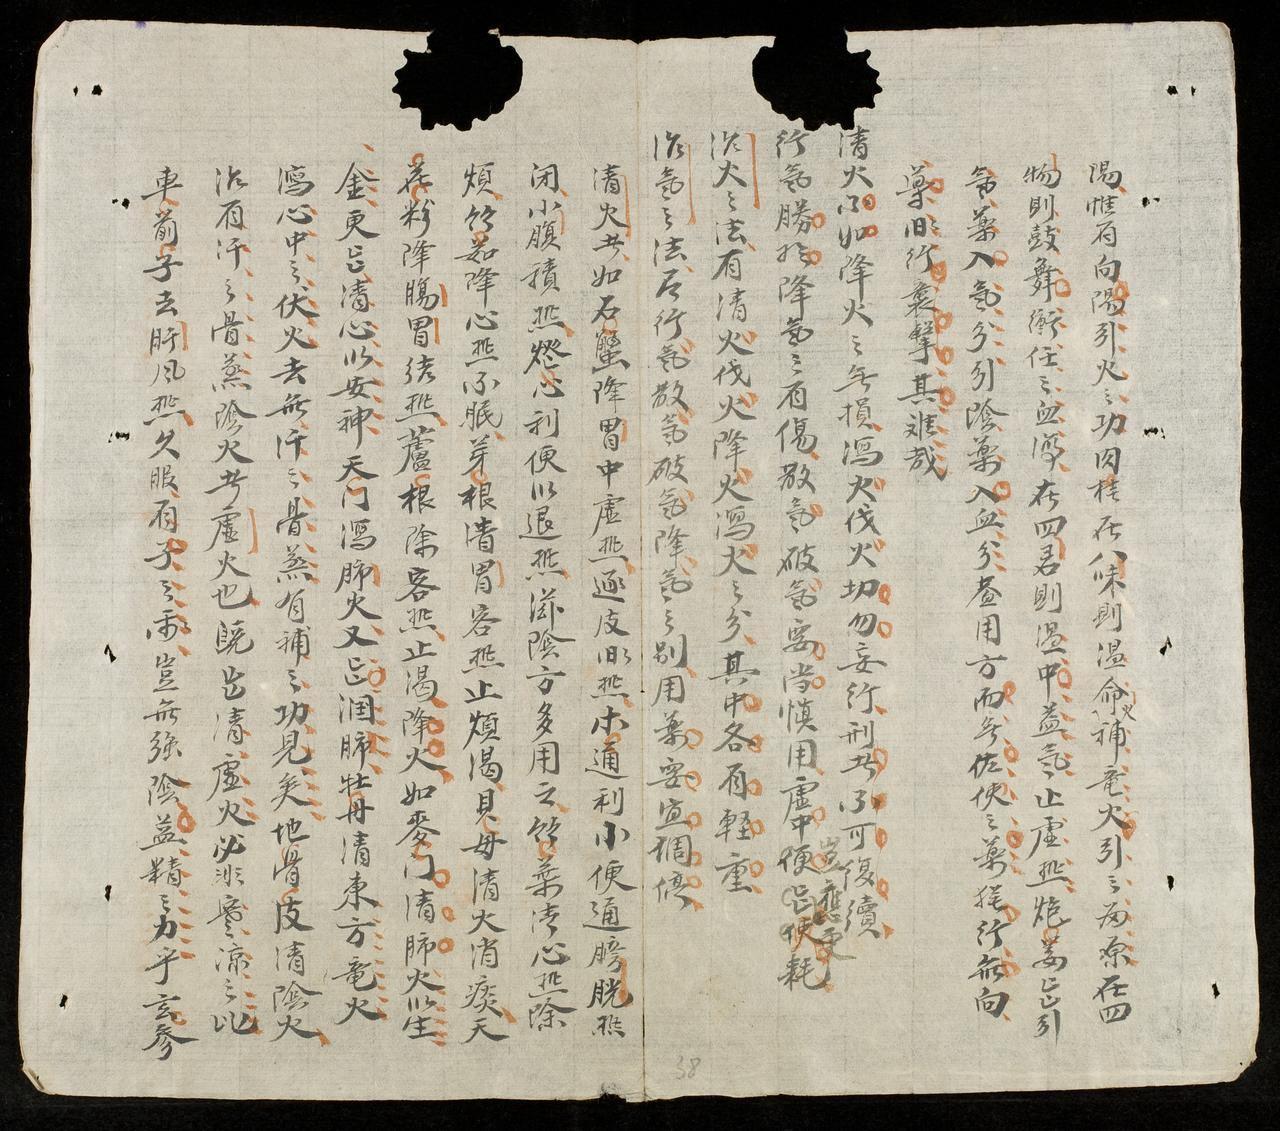 陽惟有向陽引火之功肉桂在八味則溫命火補竜火引之為原在四
物則鼓舞衝任之血導在四君則溫中益氣止虛熱炮姜能引
氣藥入氣分引陰藥入血分盖用方而無佐使之藥猶行無向
藥旧行囊擊其难哉
清火不如降火之無損瀉火伐火切勿妄行刑者不可復續
行氣勝於降氣之有傷散氣破氣要当慎用虛中便能使耗
岂應更
治火之法有清火伐火降火瀉火之分其中各有軽重
治氣之法有行氣散氣破氣降氣之別用藥要宜調停
清火者如石蟹降胃中虛熱逐皮旧熱木通利小便通膀胱熱
闭小腹積熱燈心利便以退熱滋陰方多用之竹葉清心熱除
煩竹茹降心熱不眠芽根清胃客熱止煩渴貝母清火消痰天
花粉降腸胃結熱蘆根除客熱止渴降火如麥门清肺火以生
金更能清心以安神天门瀉肺火又能潤肺牡丹清東方竜火
瀉心中之伏火去無汗之骨蒸有補之功見矣地骨皮清陰火
治有汗之骨蒸陰火者虛火也既岂清虛火必非寒凉之比
車前子去肝风熱久服有子之需豈無強陰益精之力乎玄參
38